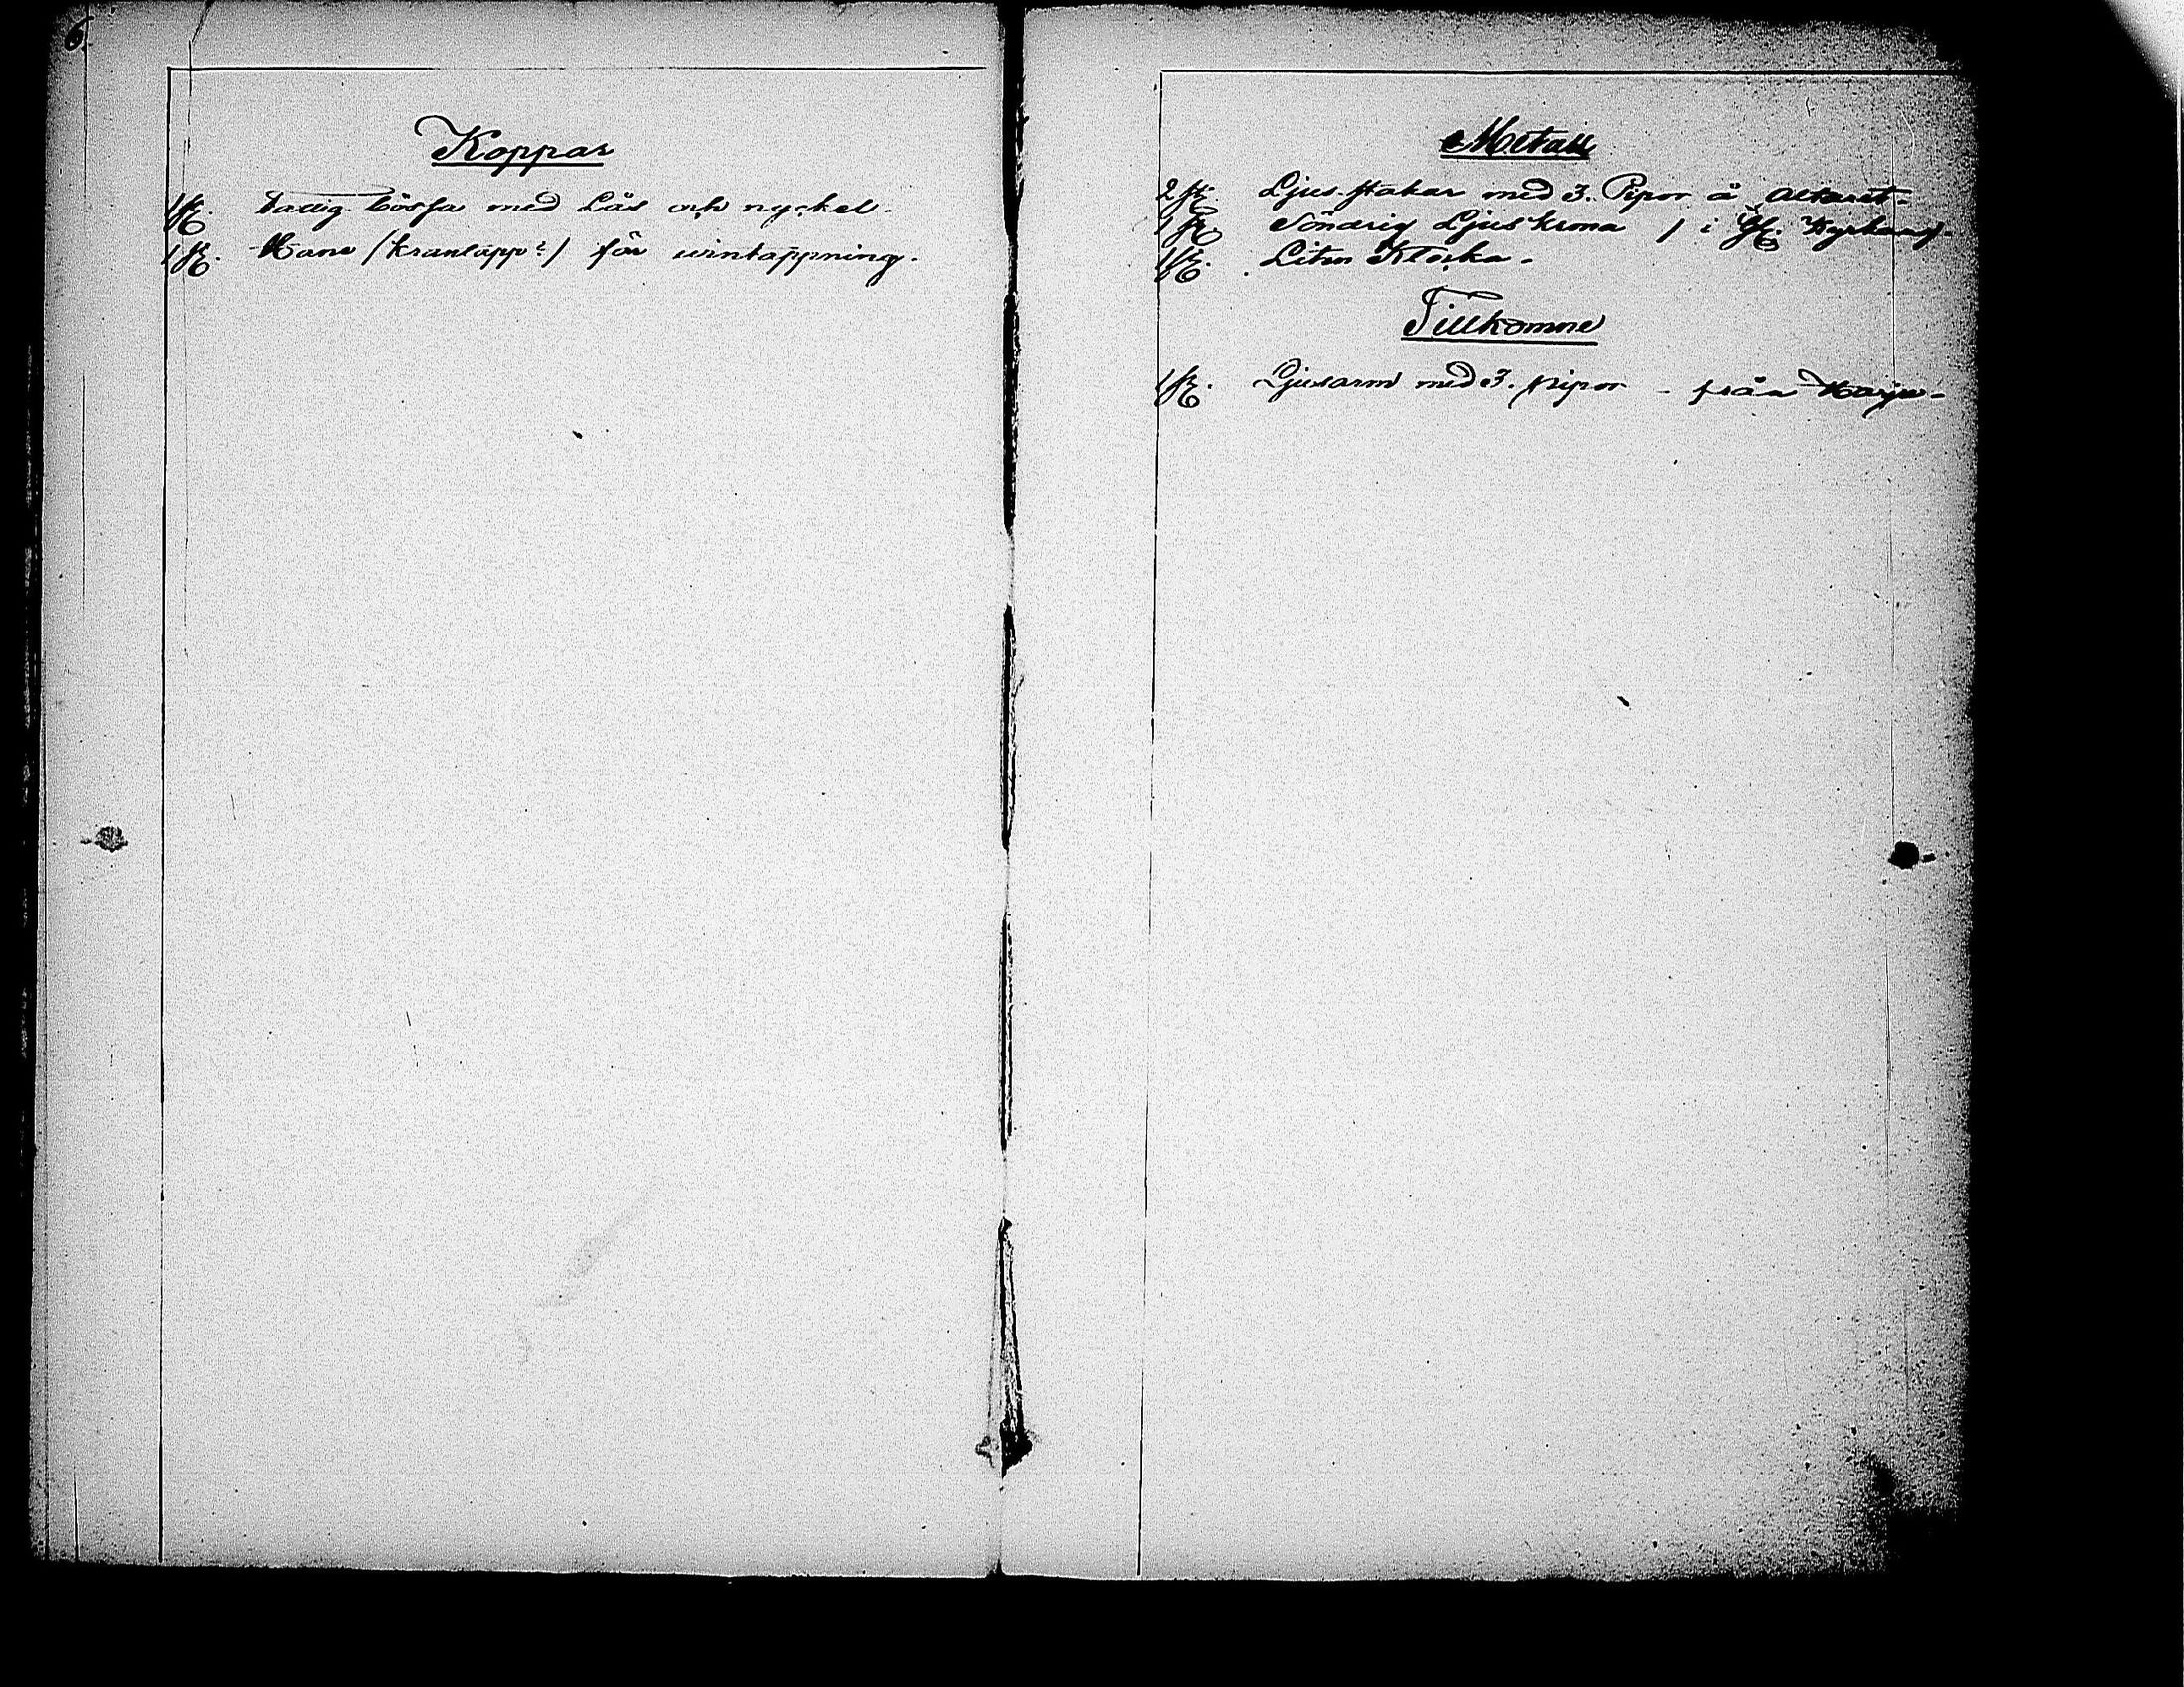 6.
Koppar
1 st. Fattig-bössa med Lås och nyckel.
1 st. Hane /krantapp?/ för vintappning.
Metall
2 st. Ljus-stakar med 3. Pipor å Altaret.
1 st. Söndrig Ljuskrona / i
1 st. Liten Klocka.
Tillkomne
1 st. Ljusarm med 3. pipor - från Harju.